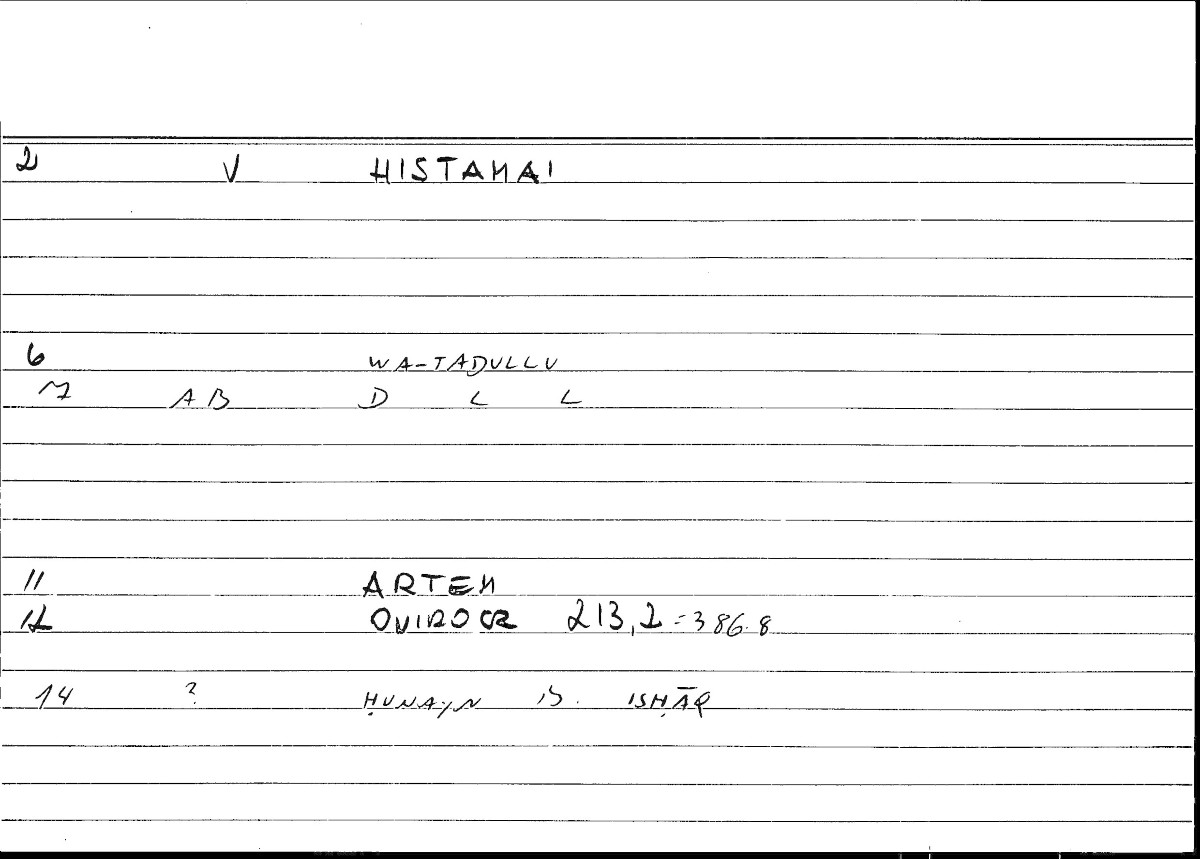 2 V HISTAMAI
6 WA-TADULLU
7 AB D L L
11 ARTEM
12 ONIROCR 213,2 = 386.8
14 ? ḤUNAYN B. ISḤĀQ